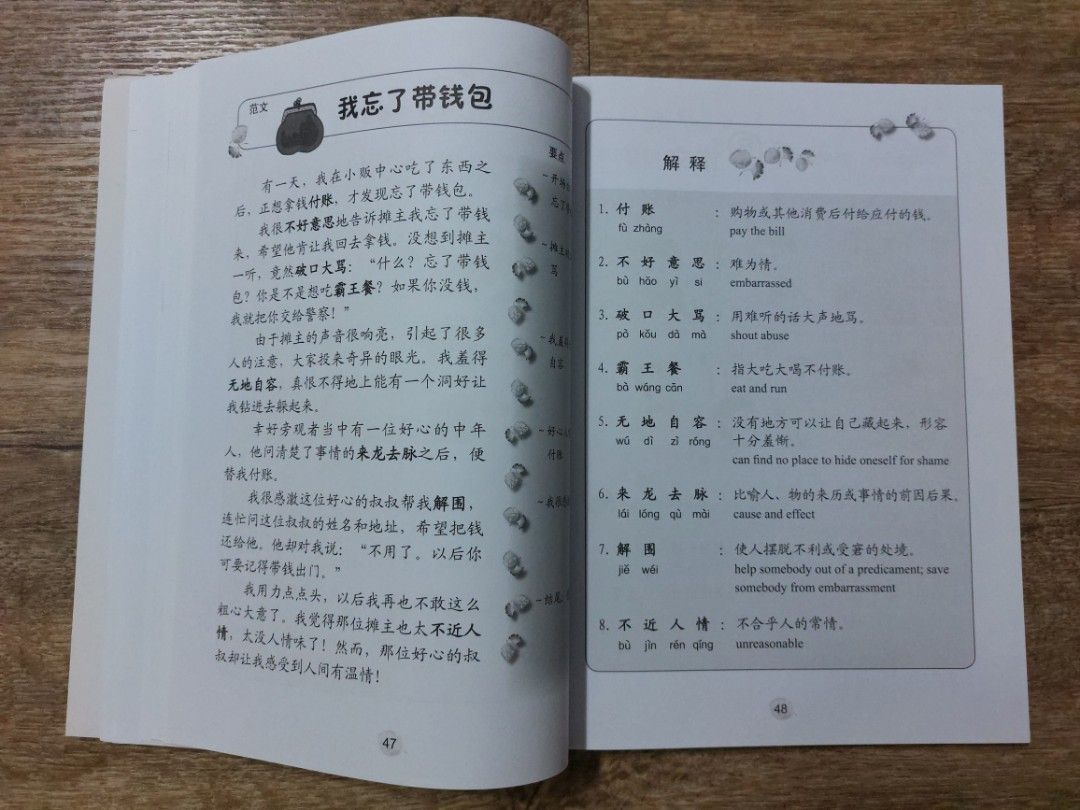 范文
我忘了带钱包
有一天，我在小贩中心吃了东西之
后，正想拿钱付账，才发现忘了带钱包。
我很不好意思地告诉摊主我忘了带钱
来，希望他肯让我回去拿钱。没想到摊主
一听，竟然破口大骂：“什么？忘了带钱
包？你是不是想吃霸王餐？如果你没钱，
我就把你交给警察！”
由于摊主的声音很响亮，引起了很多
人的注意，大家投来奇异的眼光。我羞得
无地自容，真恨不得地上能有一个洞好让
我钻进去躲起来。
幸好旁观者当中有一位好心的中年
人，他问清楚了事情的来龙去脉之后，便
替我付账。
我很感激这位好心的叔叔帮我解围，
连忙问这位叔叔的姓名和地址，希望把钱
还给他。他却对我说：“不用了。以后你
可要记得带钱出门。”
我用力点点头，以后我再也不敢这么
粗心大意了。我觉得那位摊主也太不近人
情，太没人情味了！然而，那位好心的叔
叔却让我感受到人间有温情！
要点
－开场
忘了
－摊主
骂
－我羞
自容
－好心
付账
－我很
－结尾
47
解释
1. 付账 ： 购物或其他消费后付给应付的钱。
fù zhàng pay the bill
2. 不好意思 ： 难为情。
bù hǎo yì si embarrassed
3. 破口大骂 ： 用难听的话大声地骂。
pò kǒu dà mà shout abuse
4. 霸王餐 ： 指大吃大喝不付账。
bà wáng cān eat and run
5. 无地自容 ： 没有地方可以让自己藏起来，形容
十分羞惭。
wú dì zì róng can find no place to hide oneself for shame
6. 来龙去脉 ： 比喻人、物的来历或事情的前因后果。
lái lóng qù mài cause and effect
7. 解围 ： 使人摆脱不利或受窘的处境。
jiě wéi help somebody out of a predicament; save
somebody from embarrassment
8. 不近人情 ： 不合乎人的常情。
bù jìn rén qíng unreasonable
48